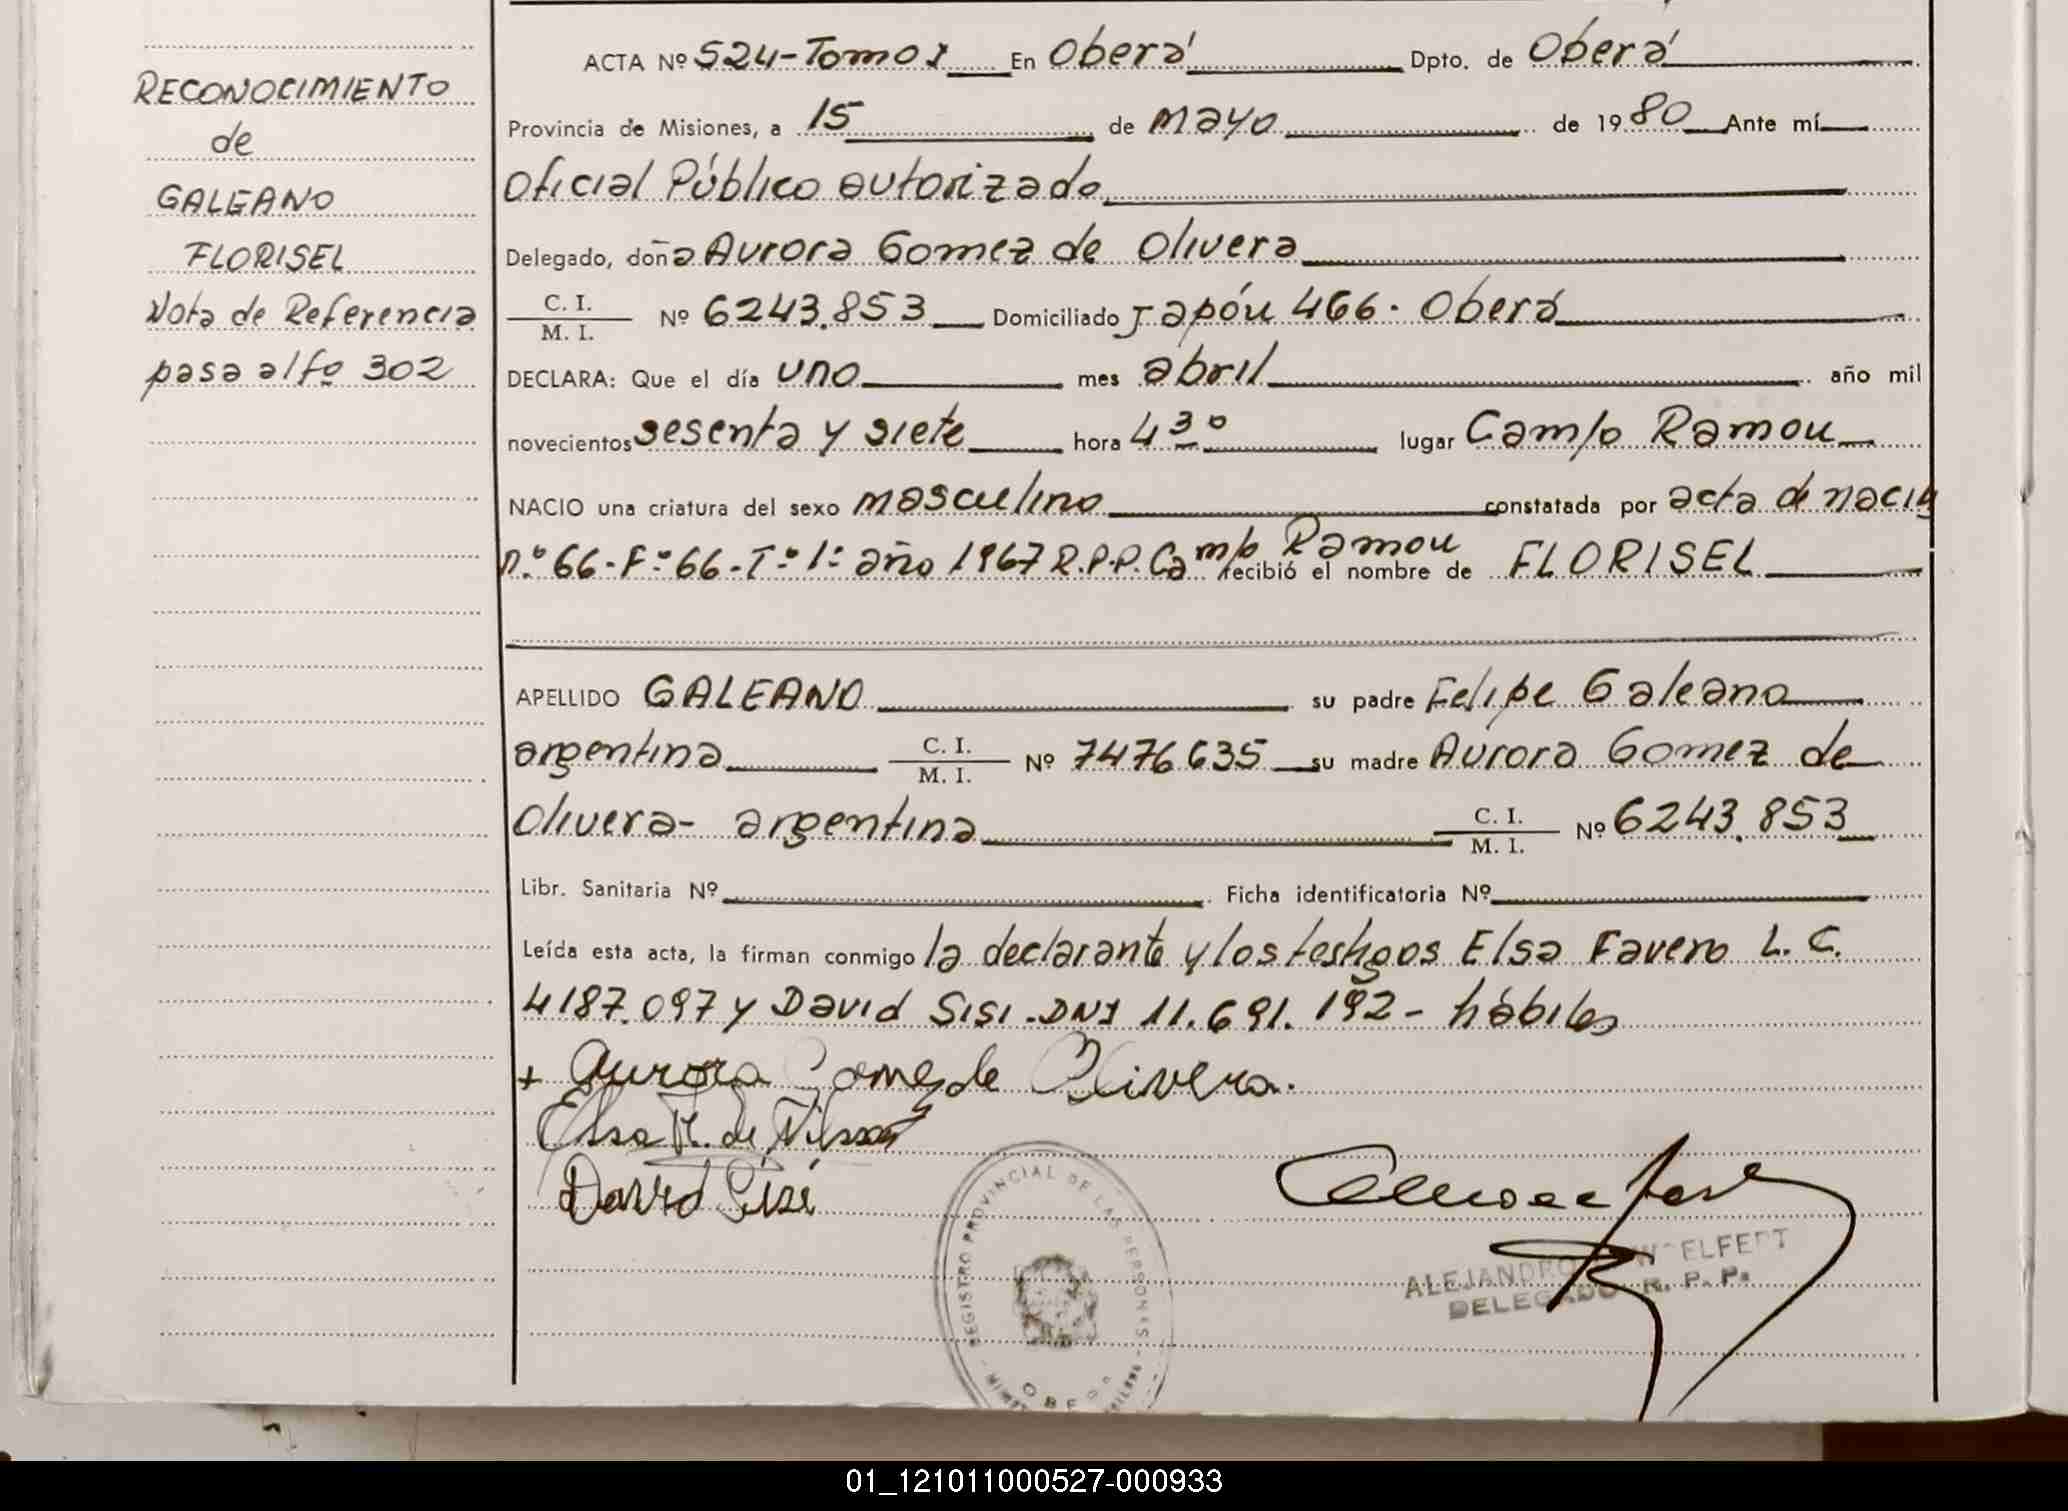 RECONOCIMIENTO
de
GALEANO
FLORISEL
Nota de Referencia
pasa al fº 302
ACTA Nº 524-Tomo I En Oberá Dpto. de Oberá
Provincia de Misiones, a 15 de mayo de 1980 Ante mí
Oficial Público autorizado
Delegado, doña Aurora Gomez de Olivera
C. I. / M. I. Nº 6243.853 Domiciliado Japón 466. Oberá
DECLARA: Que el día uno mes abril año mil
novecientos sesenta y siete hora 4 30 lugar Campo Ramon
NACIO una criatura del sexo masculino constatada por acta de nacim
n.º 66-Fº 66-Tº 1º año 1967 R.P.P. Campo Ramon recibió el nombre de FLORISEL
APELLIDO GALEANO su padre Felipe Galeano
argentina C. I. / M. I. Nº 7476635 su madre Aurora Gomez de
Olivera- argentina C. I. / M. I. Nº 6243.853
Libr. Sanitaria Nº Ficha identificatoria Nº
Leída esta acta, la firman conmigo la declarante y los testigos Elsa Favero L. C.
4187.097 y David Sisi-DNI 11.691.192- hábiles
+ Aurora Gomes de Olivera.
Elsa F. de
David Sisi
REGISTRO PROVINCIAL DE LAS PERSONAS
ALEJANDRO WOELFERT
DELEGADO R. P. P.
01_121011000527-000933